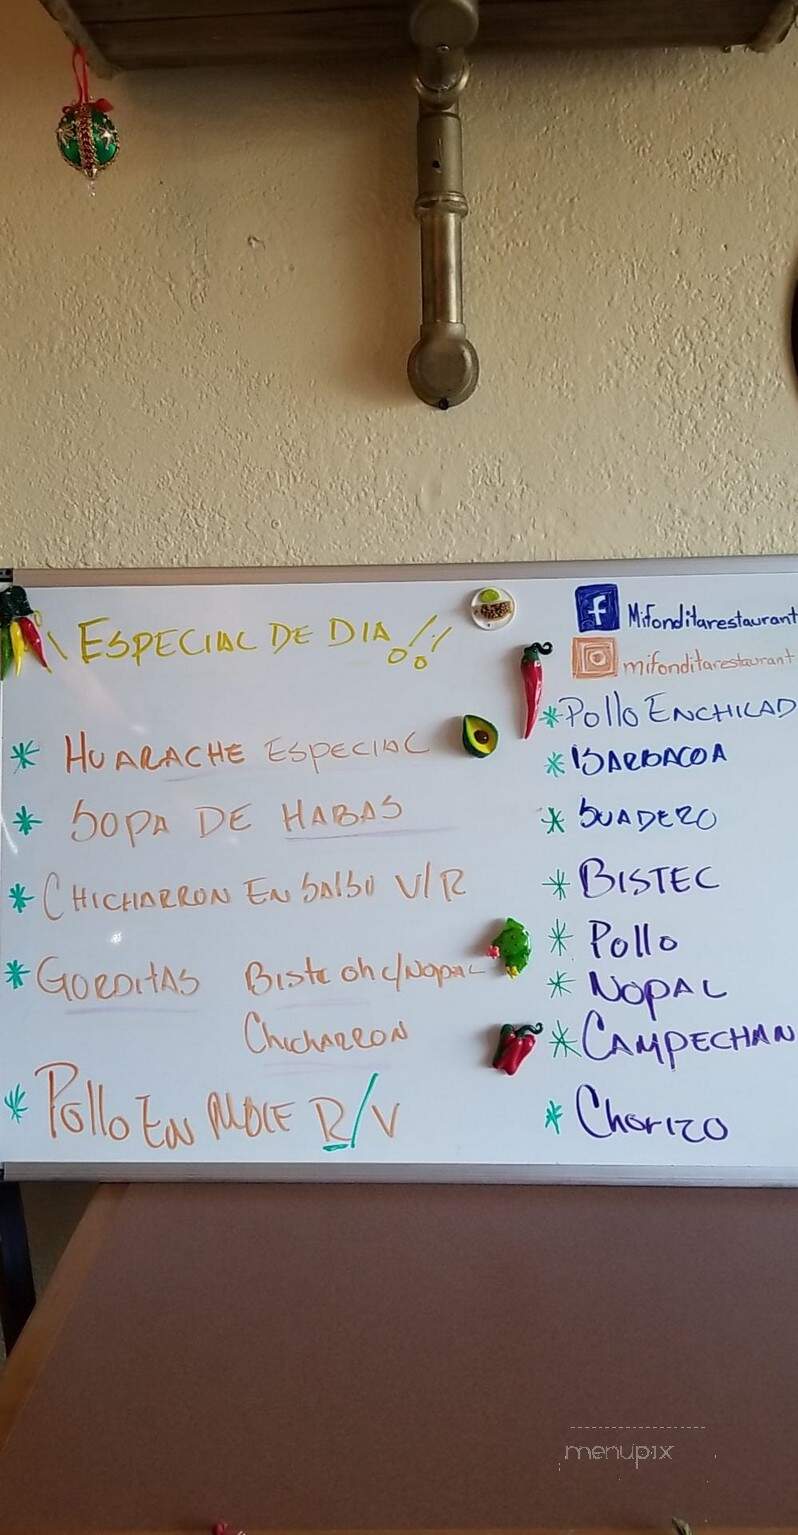 ESPECIAL DE DIA !!
* HUARACHE ESPECIAL
* SOPA DE HABAS
* CHICHARRON EN SALSU V/R
* GORDITAS Bistec oh c/NOPAL
CHICHARRON
* Pollo EN MOLE R/V
f Mifonditarestaurant
mifonditarestaurant
* Pollo ENCHILAD
* BARBACOA
* SUADERO
* BISTEC
* Pollo
* NOPAL
* CAMPECHAN
* Chorizo
menupix